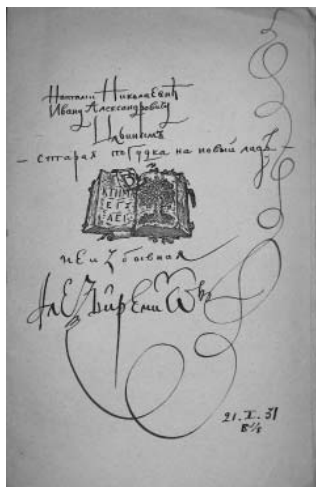 Наталии Николаевне
Ивану Александровичу
Ильиным
– старая погудка на новый ладъ –
неизбывная
Алексѣй Ремизовъ
21. X. 31